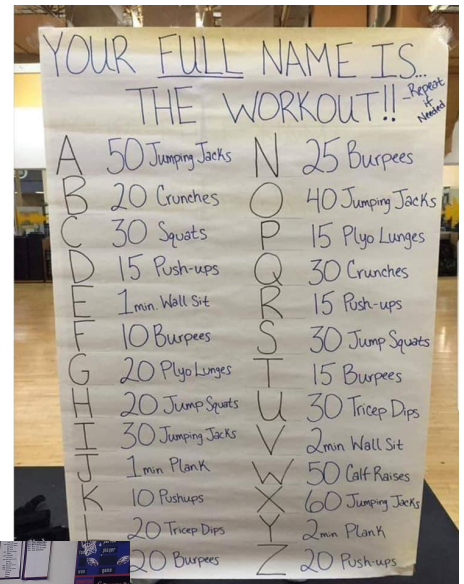 YOUR FULL NAME IS...
THE WORKOUT!! -Repeat
if
Needed
A 50 Jumping Jacks
B 20 Crunches
C 30 Squats
D 15 Push-ups
E 1min. Wall Sit
F 10 Burpees
G 20 Plyo Lunges
H 20 Jump Squats
I 30 Jumping Jacks
J 1min Plank
K 10 Pushups
L 20 Tricep Dips
20 Burpees
N 25 Burpees
O 40 Jumping Jacks
P 15 Plyo Lunges
Q 30 Crunches
R 15 Push-ups
S 30 Jump Squats
T 15 Burpees
U 30 Tricep Dips
V 2min Wall Sit
W 50 Calf Raises
X 60 Jumping Jacks
Y 2min Plank
Z 20 Push-ups